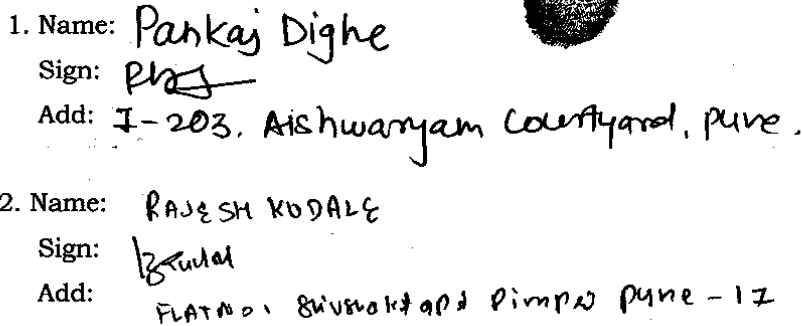 1. Name: Pankaj Dighe
Sign:
Add: I-203, Aishwaryam Courtyard, pune.
2. Name: RAJESH KUDALE
Sign:
Add: FLAT NO. pune - 17